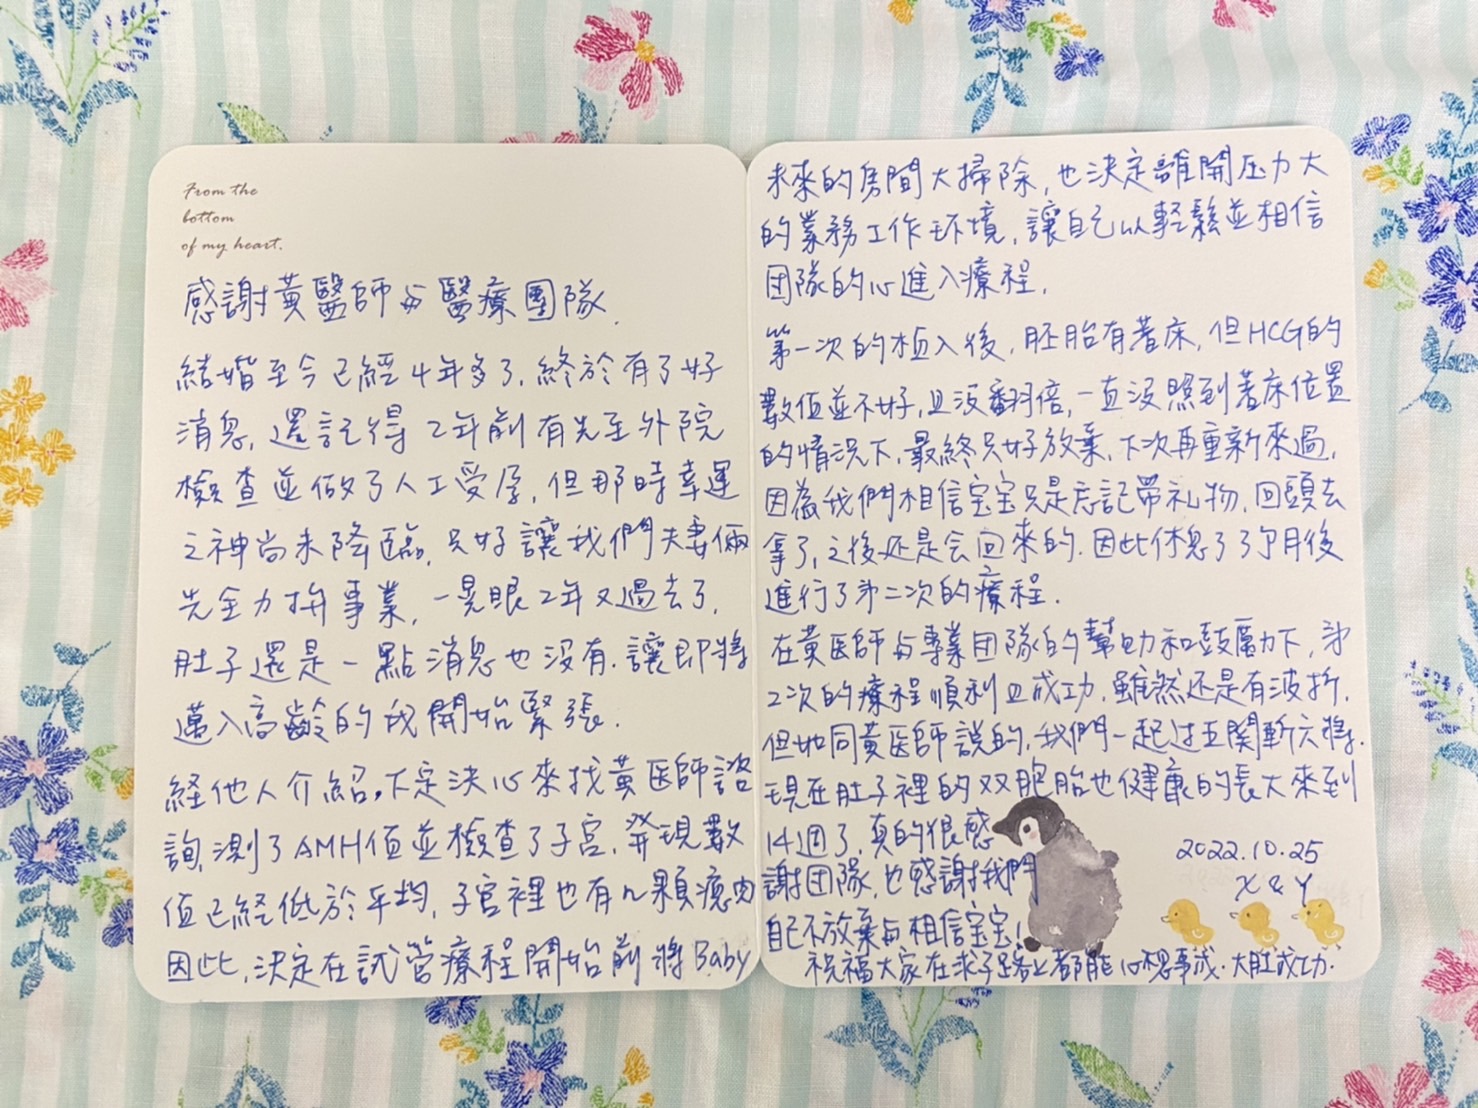 From the
bottom
of my heart.
感謝黃醫師与醫療團隊.
結婚至今已經4年多了,終於有了好
消息,還記得2年前有先至外院
檢查並做了人工受孕,但那時幸運
之神尚未降臨,只好讓我們夫妻倆
先全力拚事業,一晃眼2年又過去了,
肚子還是一點消息也沒有.讓即將
邁入高齡的我開始緊張.
経他人介紹,下定決心來找黃医師諮
詢,測了AMH值並檢查了子宮,発現數
值已経低於平均,子宮裡也有几顆瘜肉
因此,決定在試管療程開始前將Baby
未來的房間大掃除,也決定離開压力大
的業務工作环境,讓自己以輕鬆並相信
团隊的心進入療程.
第一次的植入後,胚胎有著床,但HCG的
數值並不好,且沒翻倍,一直沒照到著床位置
的情況下,最終只好放棄,下次再重新來過,
因為我們相信宝宝只是忘記带礼物,回頭去
拿了,之後还是会回來的.因此休息了3个月後
進行了第二次的療程.
在黃医師与專業团隊的幫助和鼓厲力下,第
2次的療程順利且成功.雖然还是有波折.
但如同黃医師說的,我們一起过五関斬六將.
現在肚子裡的双胞胎也健康的長大來到
14週了,真的很感
謝团隊,也感謝我們
自己不放棄与相信宝宝!
2022.10.25
X & Y
祝福大家在求子路上都能心想事成.大肚成功.